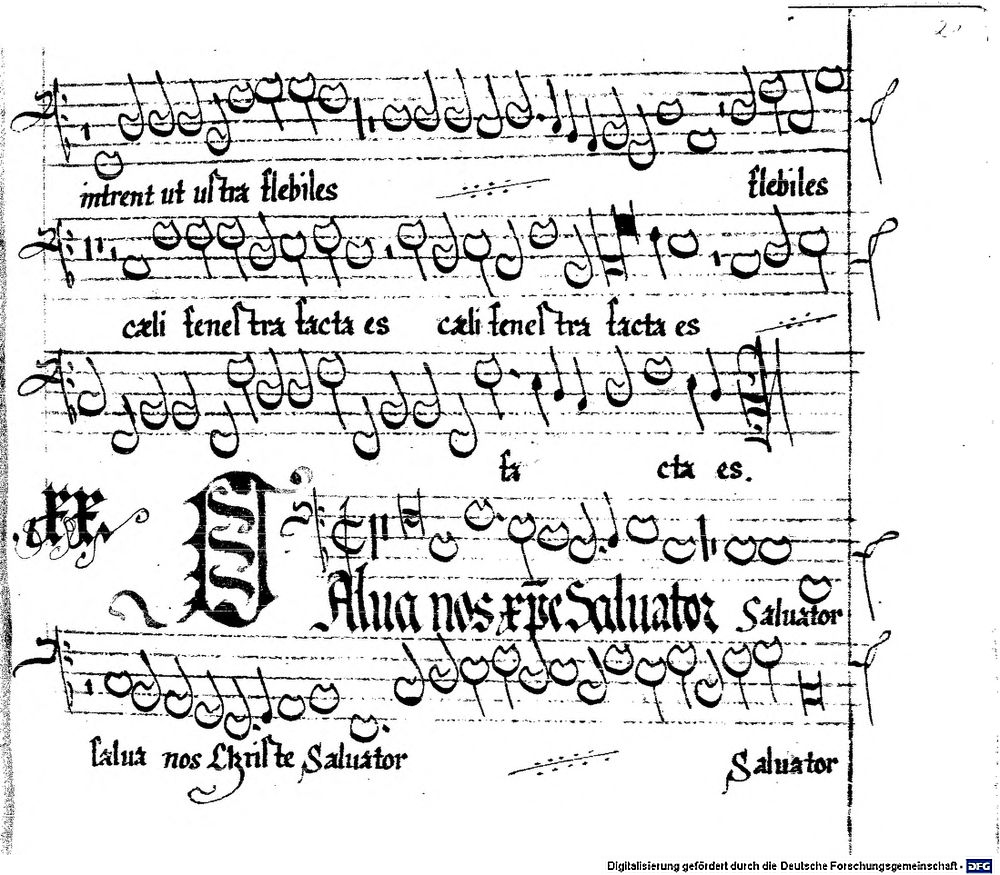 intrent ut uſtra flebiles flebiles
cæli feneſtra facta es cæli feneſtra facta es
fa cta es.
XX.
SAlua nos xp̄e Saluator Saluator
ſalua nos Chriſte Saluator Saluator
Digitalisierung gefördert durch die Deutsche Forschungsgemeinschaft - DFG